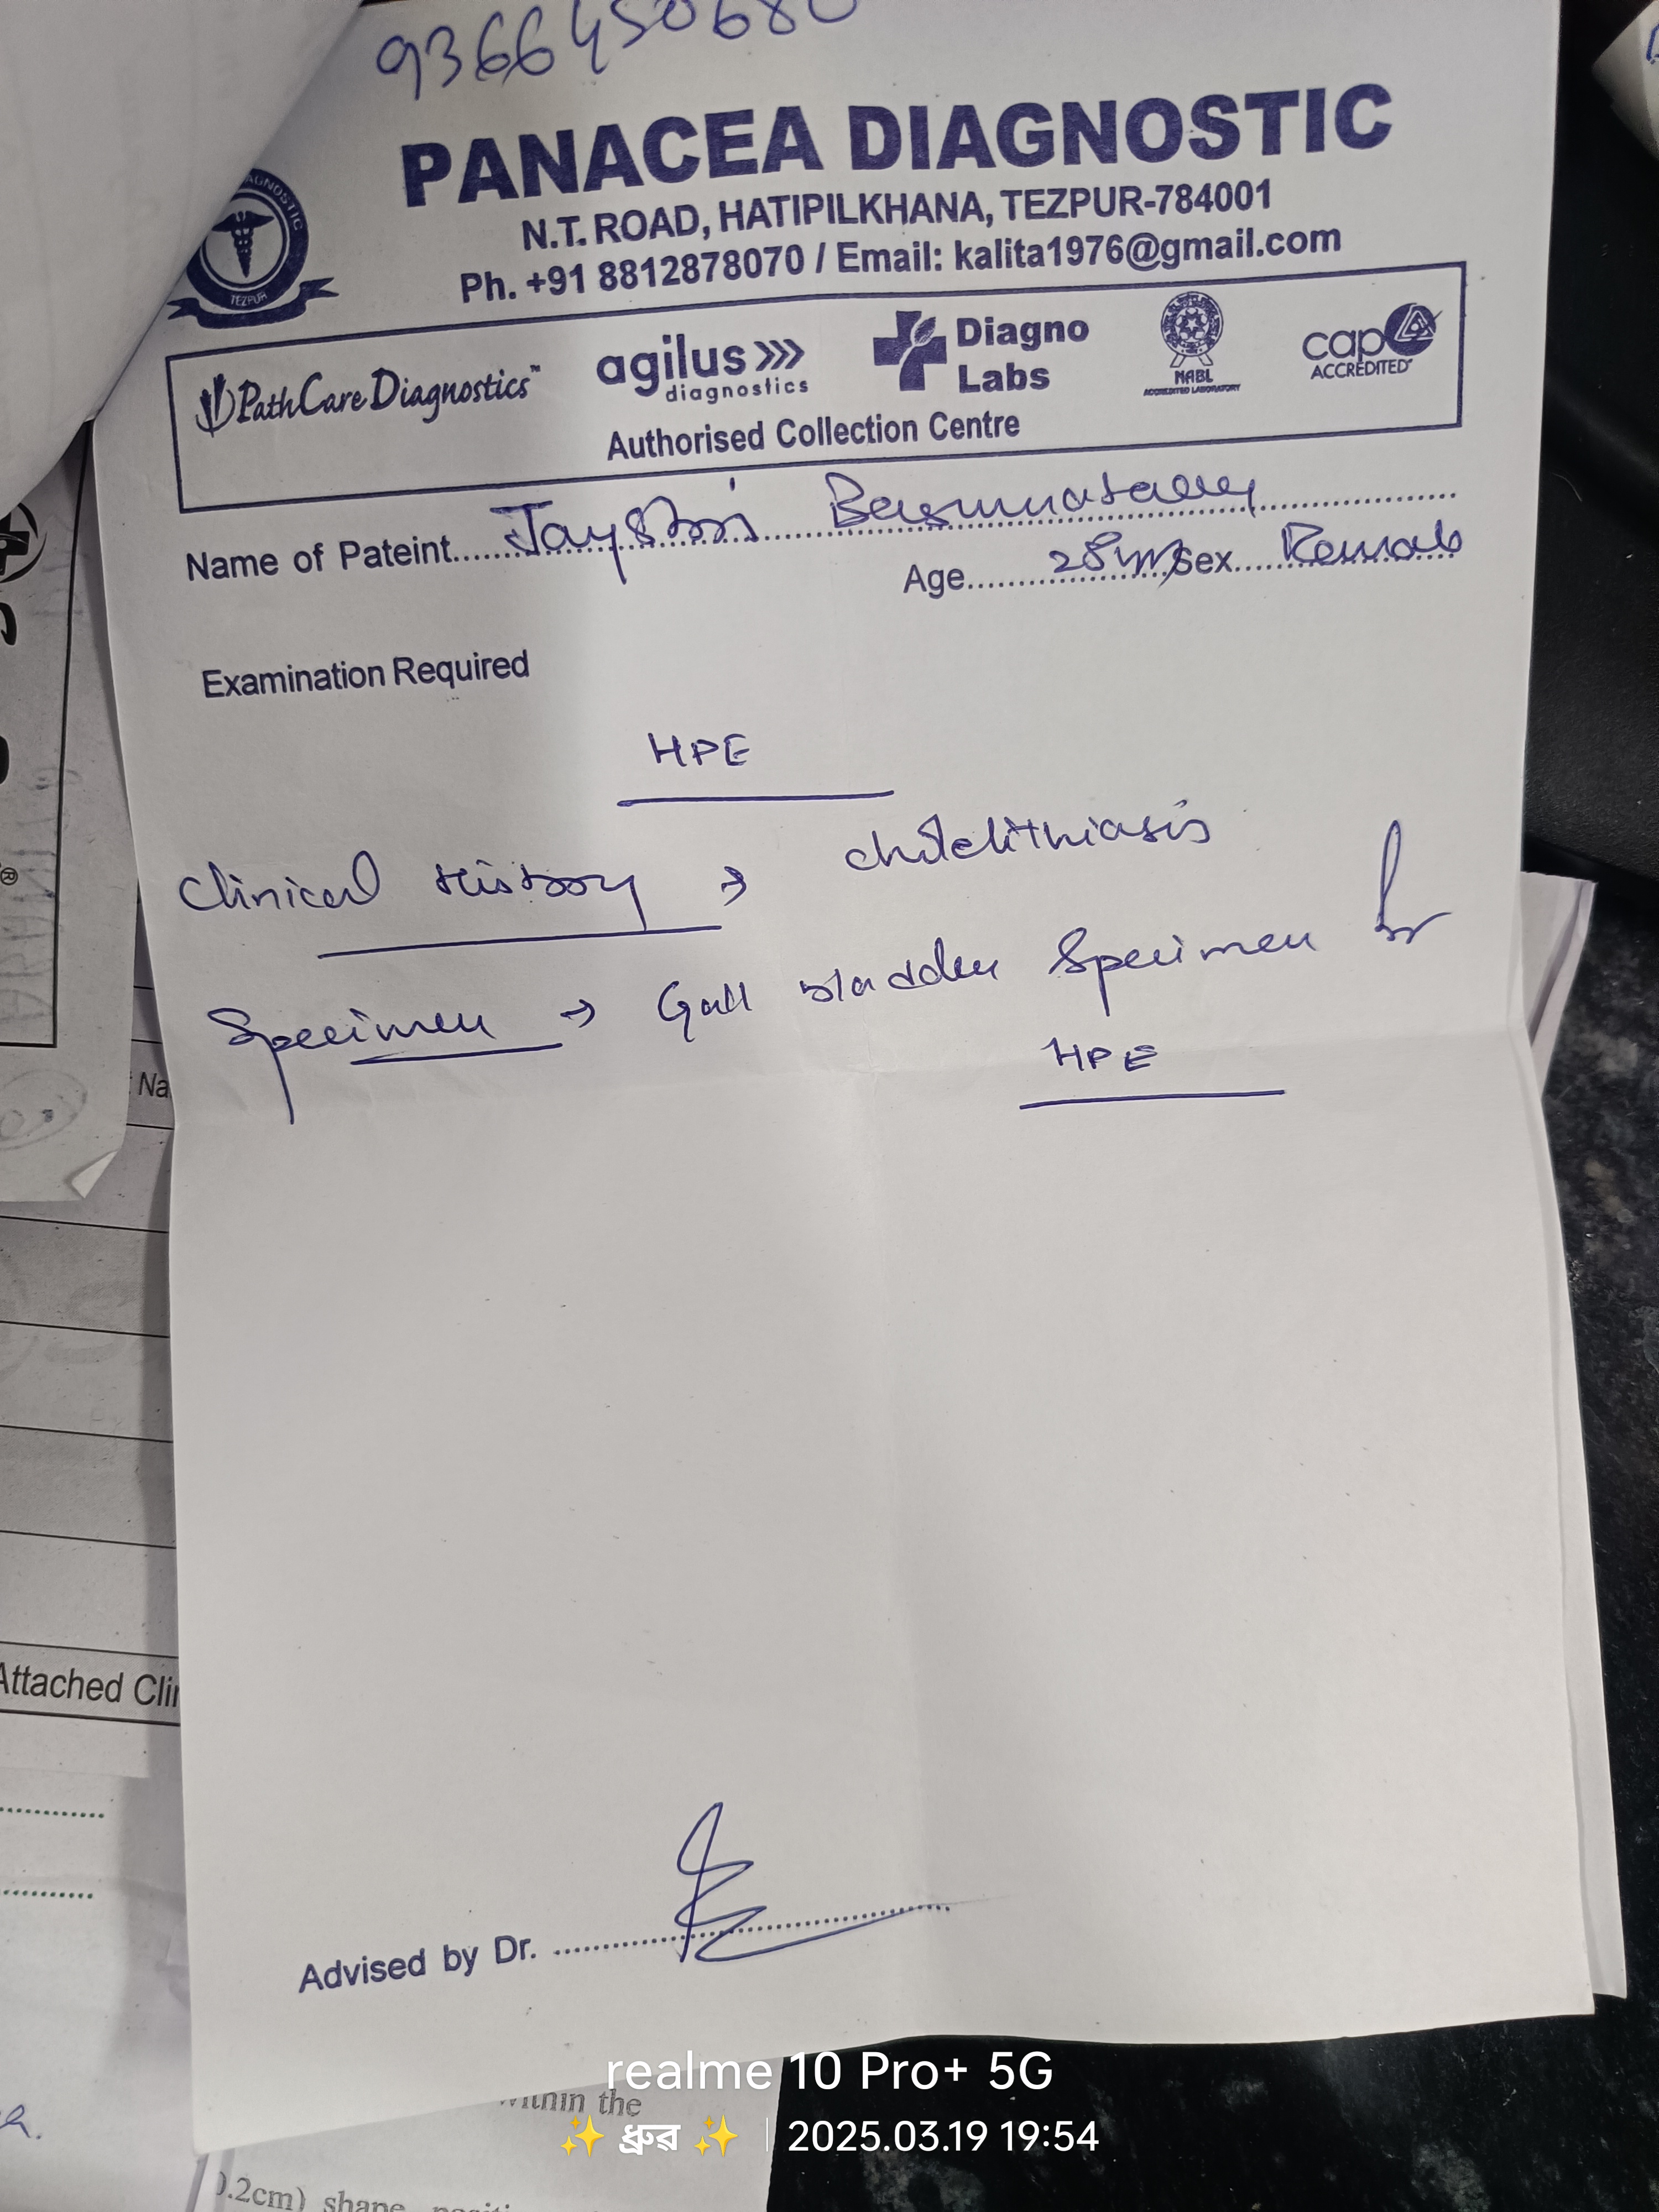 9366450680
PANACEA DIAGNOSTIC
N.T. ROAD, HATIPILKHANA, TEZPUR-784001
Ph. +91 8812878070 / Email: kalita1976@gmail.com
AGNOSTIC
TEZPUR
PathCare Diagnostics™
agilus
diagnostics
Diagno
Labs
NABL
ACCREDITED LABORATORY
cap
ACCREDITED
Authorised Collection Centre
Name of Pateint Jayshri
Age 28 yrs Sex Female
Examination Required
HPE
Clinical History → cholelithiasis
Specimen → Gall bladder Specimen for
HPE
Na
Attached Cli
Advised by Dr.
within the
0.2cm) shape
realme 10 Pro+ 5G
✨ ধ্রুৱ ✨ | 2025.03.19 19:54